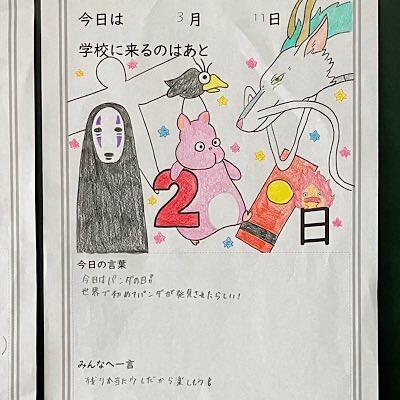 今日は 3月 11日
学校に来るのはあと
2日
今日の言葉
今日はパンダの日!!
世界で初めてパンダが発見されたらしい!
みんなへ一言
残り本当に少しだから楽しもう